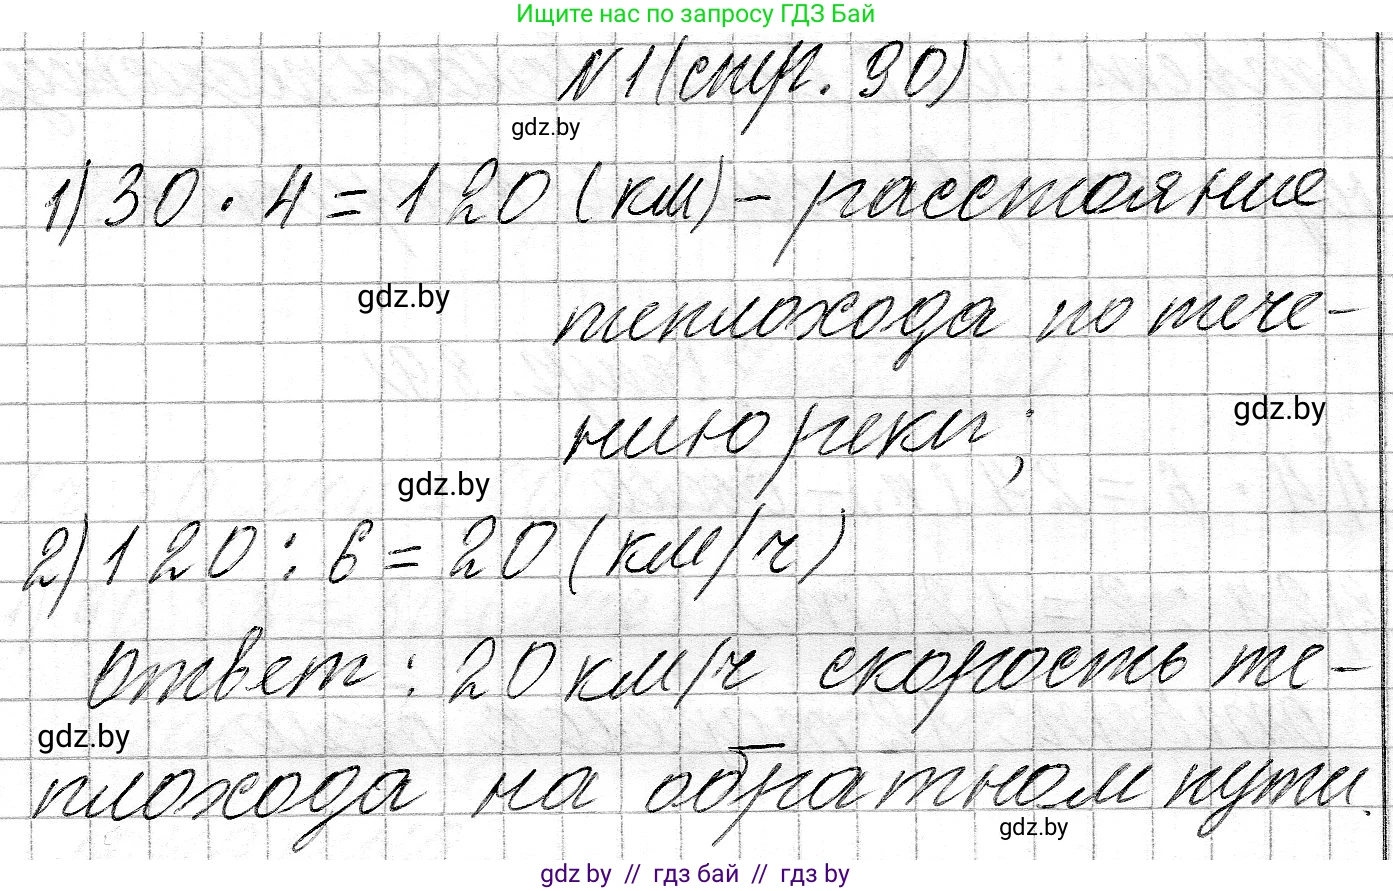 Ищите нас по запросу ГДЗ Бай
№1 (стр. 90)
gdz.by
1) 30 · 4 = 120 (км) – расстояние
gdz.by
теплохода по тече-
gdz.by
нию реки;
gdz.by
2) 120 : 6 = 20 (км/ч)
Ответ: 20 км/ч скорость те-
gdz.by
плохода на обратном пути.
gdz.by
gdz.by // гдз бай // гдз by